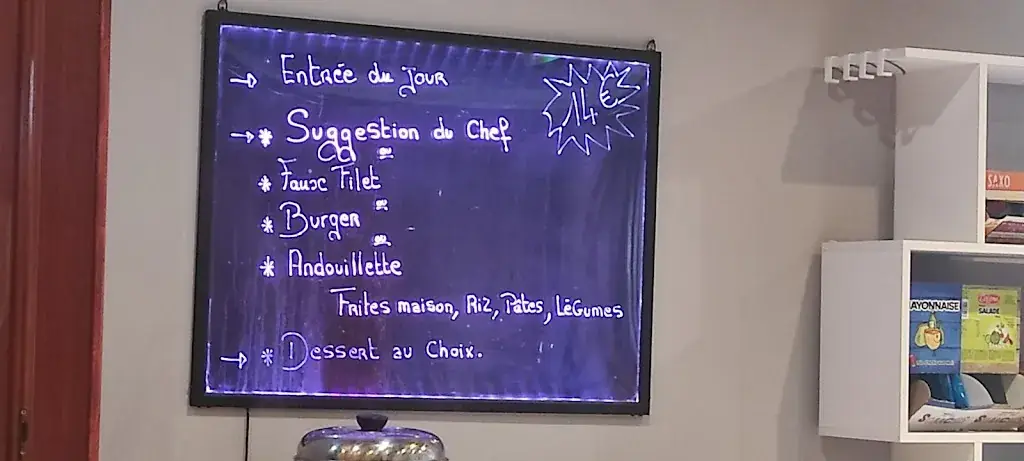 → Entrée du jour
14€
→ * Suggestion du Chef
ou
* Faux Filet
ou
* Burger
ou
* Andouillette
Frites maison, Riz, Pâtes, Légumes
→ * Dessert au Choix.
SAXO
AYONNAISE
SALADE